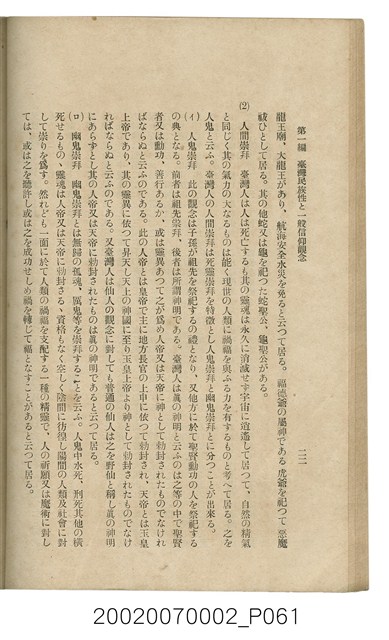 第一編　臺灣民族性と一般信仰觀念
二二
龍王廟、大龍王があり、航海安全水災を免ると云つて居る。福德爺の屬神である虎爺を祀つて惡魔
祓ひとして居る。其の他蛇又は龜を祀つた蛇聖公、龜聖公がある。
(2)　人間崇拜　臺灣人は人は死亡するも其の靈魂は永久に消滅せず宇宙に逍遙して居つて、自然の精氣
と同じく其の氣力の大なるものは能く現世の人類に禍福を與ふる力を有するものと考へて居る。之を
人鬼と云ふ。臺灣人の人間崇拜は死靈崇拜を特徵とし人鬼崇拜と幽鬼崇拜とに分つことが出來る。
(イ)　人鬼崇拜　此の觀念は子孫が祖先を祭祀するの禮となり、又他方に於て聖賢勳功の人を祭祀する
の典となる。前者は祖先崇拜、後者は所謂神明である。臺灣人は眞の神明と云ふのは之等の中で聖賢
者又は勳功、善行あるか、或は靈異あつて之が爲め人帝又は天帝に神として勅封されたものでなけれ
ばならぬと云ふのである。此の人帝とは皇帝で主に地方長官の上申に依つて勅封され、天帝とは玉皇
上帝であり、其の靈異に依つて昇天し天上の神國に至り玉皇上帝より神として勅封されたものでなけ
ればならぬと云ふのである。又臺灣人は仙人の觀念に對しても普通の仙人は之を野仙と稱し眞の神明
にあらずとし其の人帝又は天帝に勅封されたものは眞の神明であると云つて居る。
(ロ)　幽鬼崇拜　幽鬼崇拜とは無歸の孤魂、厲鬼等を崇拜することを云ふ。人鬼中水死、刑死其他の橫
死せるもの、靈魂は人帝又は天帝に勅封さるゝ資格もなく空しく陰間に彷徨し陽間の人類及社會に對
して祟りを爲す。然れども一面に於て人類の禍福を支配する一種の精靈で、人の祈願又は魔術に對し
ては、或は之を聽許し或は之を成功せしめ禍を轉じて福となすことがあると云つて居る。
20020070002_P061